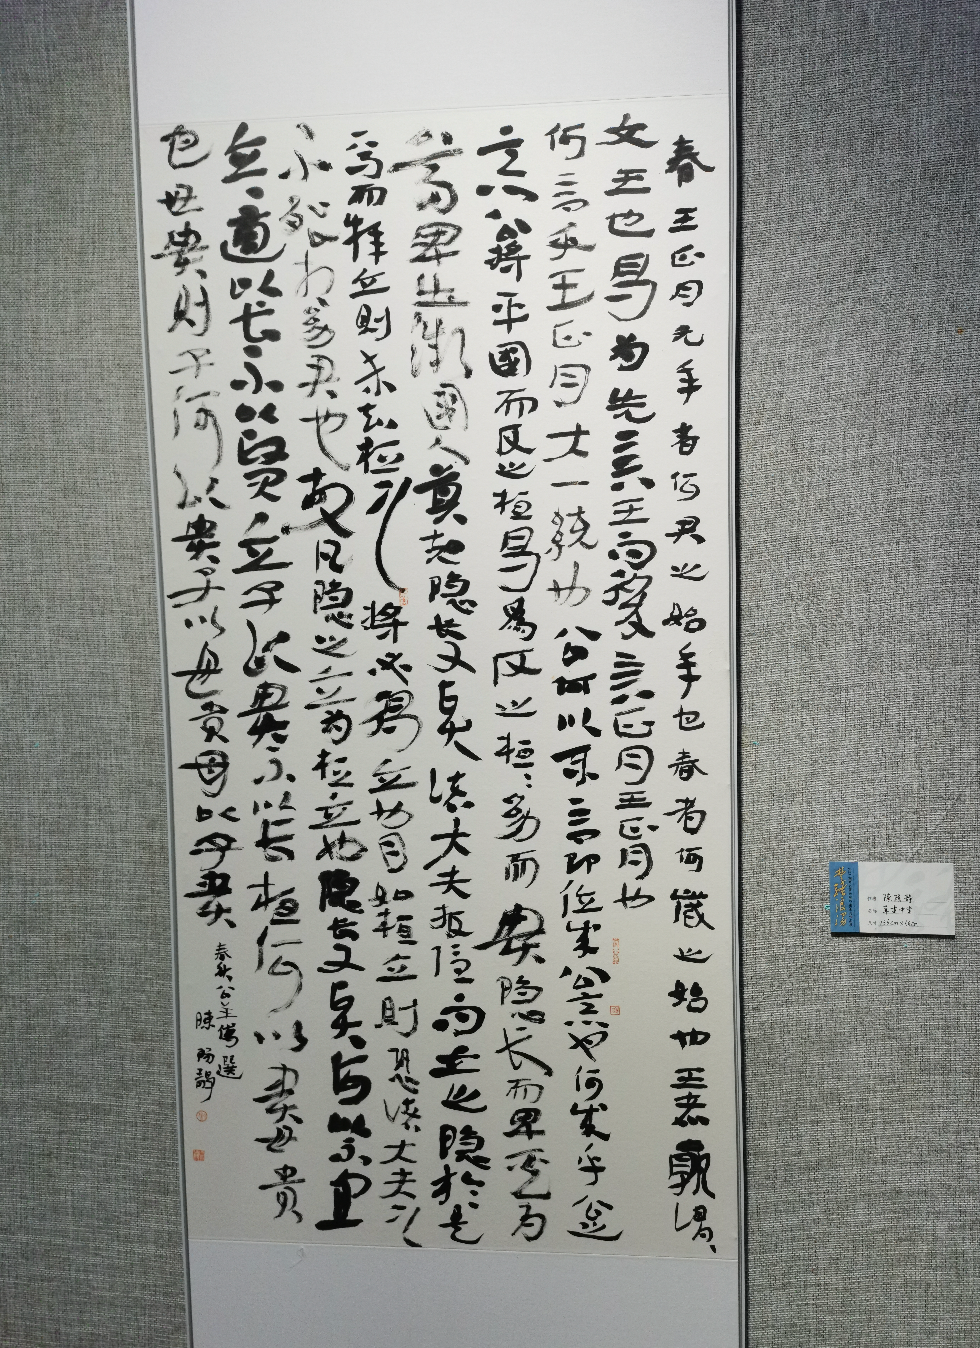 春王正月元年者何君之始年也春者何歲之始也王者孰謂〻
文王也曷为先言王而後言正月王正月也
何言乎王正月大一統也公何以不言即位成公意也何成乎公之
意公將平國而反之桓曷為反之桓〻幼而貴隐长而卑其为
尊卑也微國人莫知隐长又賢诸大夫扳隐而立之隐於是
焉而辞立則未知桓之将必得立也且如桓立則恐诸大夫之
不能相幼君也故凡隐之立为桓立也隐长又賢何以不宜
立〻適以长不以賢立子以貴不以长桓何以貴母貴
也母貴則子何以貴子以母貴母以子貴
春秋公羊傳選